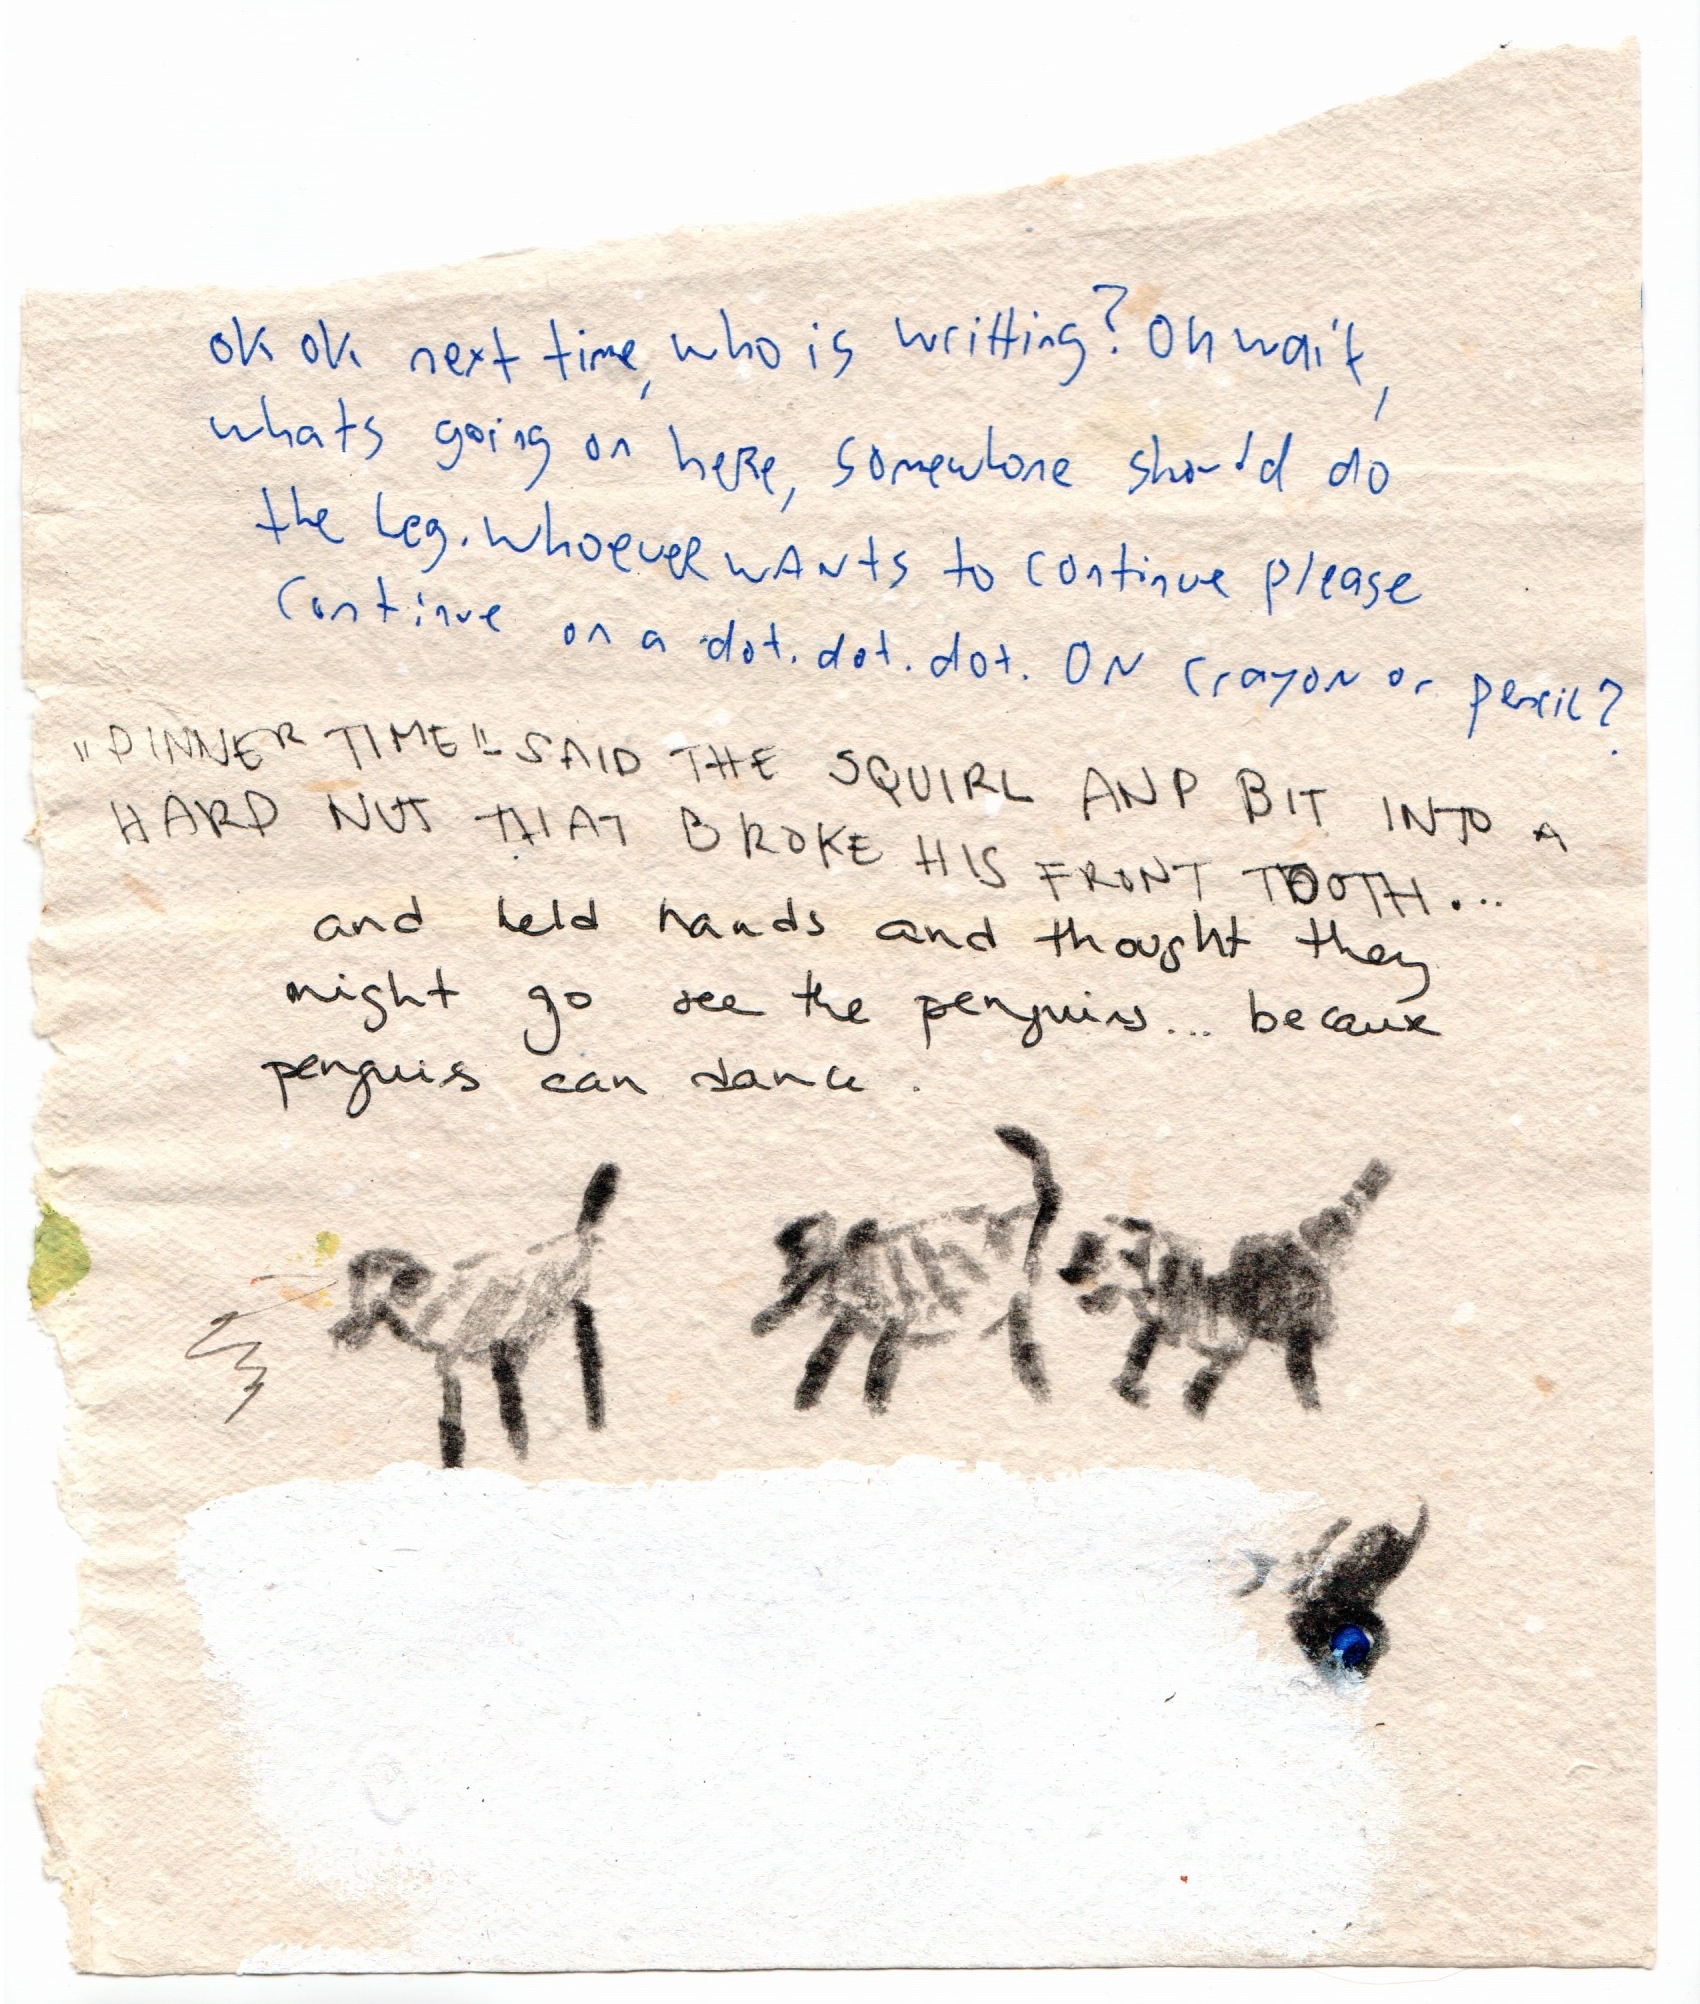 ok ok next time, who is writting? Oh wait,
whats going on here, somewhone should do
the leg. Whoever wants to continue please
continue on a dot. dot. dot. ON crayon or pencil?
"DINNER TIME"- SAID THE SQUIRL AND BIT INTO A
HARD NUT THAT BROKE HIS FRONT TOOTH...
and held hands and thought they
might go see the penguins... because
penguins can dance.